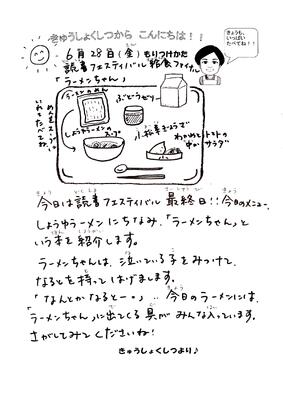 きゅうしょくしつから こんにちは！！
きょうも、
いっぱい
たべてね！！
6月28日(金) もりつけかた
読書フェスティバル 給食ファイナル
「ラーメンちゃん」
めんをスープに
いれてたべてね。
ラーメンのめん
ぶどうゼリー
しょうゆラーメンの
スープ
小松菜ぎょうざ
わかめとトマトの
中かサラダ
パン
今日は読書フェスティバル 最終日！！今日のメニュー、
しょうゆラーメンにちなみ、「ラーメンちゃん」と
いう本を紹介します。
ラーメンちゃんは、泣いている子をみつけて、
なるとを持ってはげまします。
「なんとかなると〜。」… 今日のラーメンには、
「ラーメンちゃん」に出てくる具がみんな入っています。
さがしてみてくださいね！
きゅうしょくしつより♪